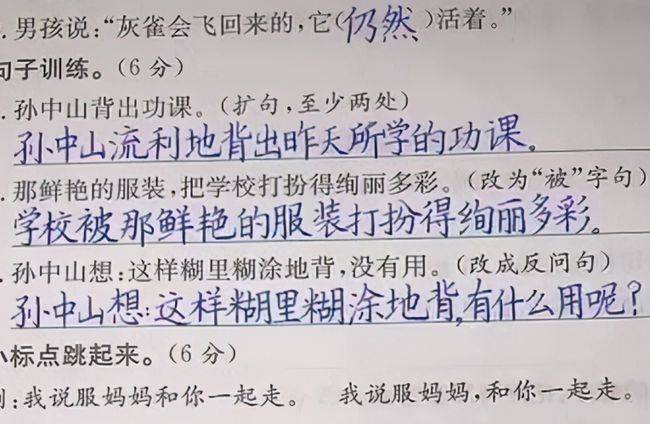 .男孩说:“灰雀会飞回来的,它(仍然)活着。”
句子训练。(6 分)
.孙中山背出功课。(扩句,至少两处)
孙中山流利地背出昨天所学的功课。
.那鲜艳的服装,把学校打扮得绚丽多彩。(改为“被”字句)
学校被那鲜艳的服装打扮得绚丽多彩。
.孙中山想:这样糊里糊涂地背,没有用。(改成反问句)
孙中山想:这样糊里糊涂地背,有什么用呢?
小标点跳起来。(6 分)
:我说服妈妈和你一起走。 我说服妈妈,和你一起走。